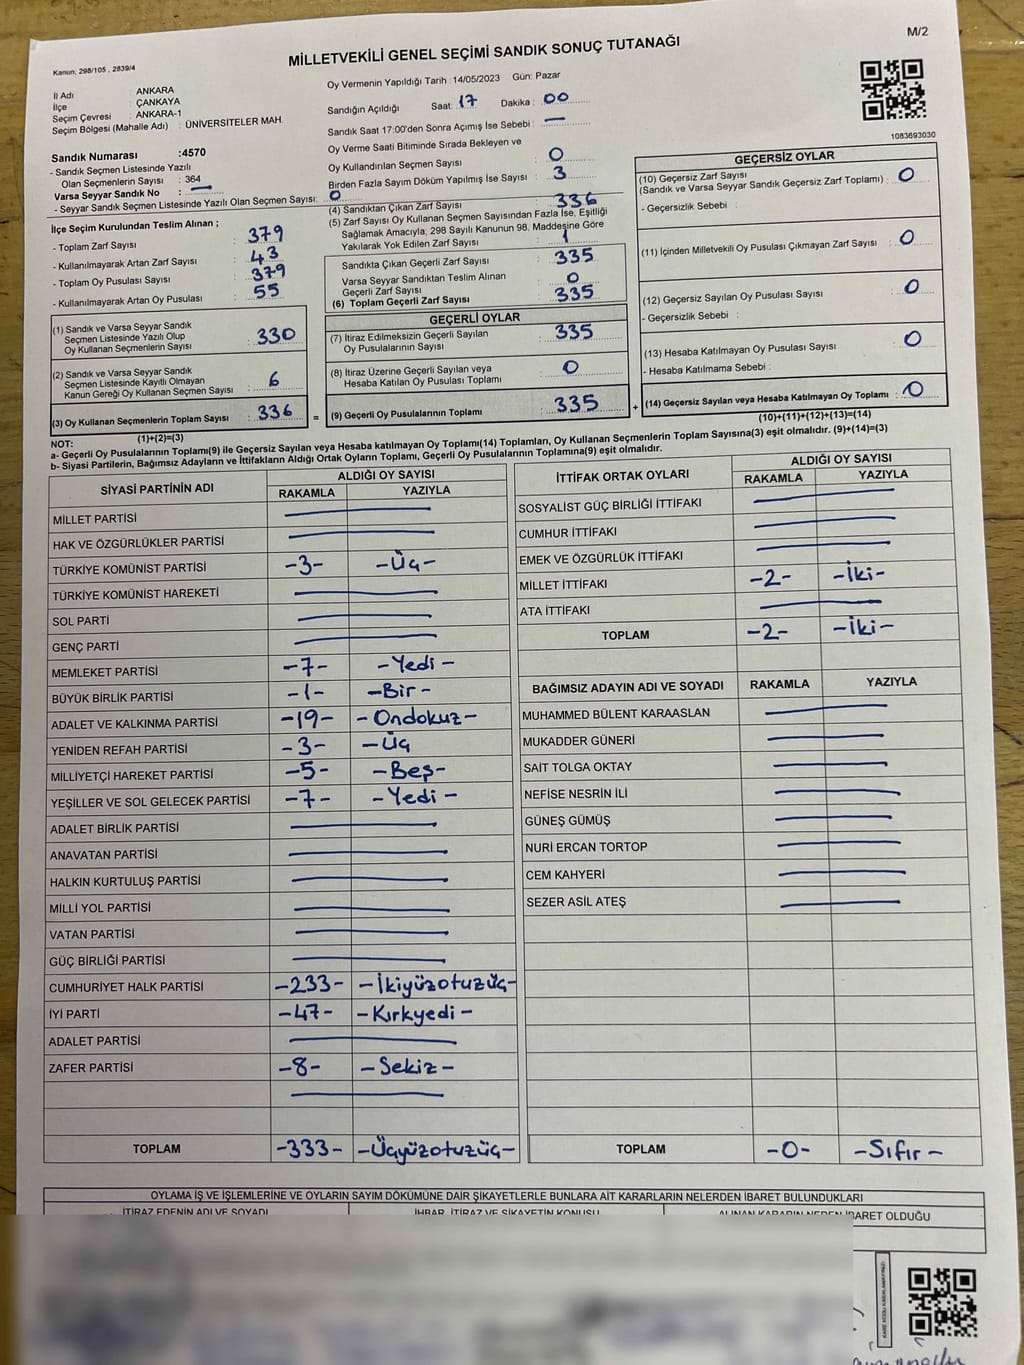 M/2
MİLLETVEKİLİ GENEL SEÇİMİ SANDIK SONUÇ TUTANAĞI
Kanun, 298/105 , 2839/4
İl Adı : ANKARA
İlçe : ÇANKAYA
Seçim Çevresi : ANKARA-1
Seçim Bölgesi (Mahalle Adı) : ÜNİVERSİTELER MAH.
Sandık Numarası :4570
- Sandık Seçmen Listesinde Yazılı
Olan Seçmenlerin Sayısı : 364
Varsa Seyyar Sandık No : —
- Seyyar Sandık Seçmen Listesinde Yazılı Olan Seçmen Sayısı: 0
İlçe Seçim Kurulundan Teslim Alınan ;
- Toplam Zarf Sayısı : 379
- Kullanılmayarak Artan Zarf Sayısı : 43
- Toplam Oy Pusulası Sayısı : 379
- Kullanılmayarak Artan Oy Pusulası : 55
(1) Sandık ve Varsa Seyyar Sandık
Seçmen Listesinde Yazılı Olup
Oy Kullanan Seçmenlerin Sayısı : 330
(2) Sandık ve Varsa Seyyar Sandık
Seçmen Listesinde Kayıtlı Olmayan
Kanun Gereği Oy Kullanan Seçmen Sayısı : 6
(3) Oy Kullanan Seçmenlerin Toplam Sayısı : 336
(1)+(2)=(3)
Oy Vermenin Yapıldığı Tarih : 14/05/2023 Gün: Pazar
Sandığın Açıldığı Saat: 17 Dakika : 00
Sandık Saat 17:00'den Sonra Açımış İse Sebebi : —
Oy Verme Saati Bitiminde Sırada Bekleyen ve
Oy Kullandırılan Seçmen Sayısı : 0
Birden Fazla Sayım Döküm Yapılmış İse Sayısı : 3
(4) Sandıktan Çıkan Zarf Sayısı : 336
(5) Zarf Sayısı Oy Kullanan Seçmen Sayısından Fazla İse, Eşitliği
Sağlamak Amacıyla; 298 Sayılı Kanunun 98. Maddesine Göre
Yakılarak Yok Edilen Zarf Sayısı : 1
Sandıkta Çıkan Geçerli Zarf Sayısı : 335
Varsa Seyyar Sandıktan Teslim Alınan
Geçerli Zarf Sayısı : 0
(6) Toplam Geçerli Zarf Sayısı : 335
GEÇERLİ OYLAR
(7) İtiraz Edilmeksizin Geçerli Sayılan
Oy Pusulalarının Sayısı : 335
(8) İtiraz Üzerine Geçerli Sayılan veya
Hesaba Katılan Oy Pusulası Toplamı : 0
= (9) Geçerli Oy Pusulalarının Toplamı : 335 +
1083693030
GEÇERSİZ OYLAR
(10) Geçersiz Zarf Sayısı
(Sandık ve Varsa Seyyar Sandık Geçersiz Zarf Toplamı) : 0
- Geçersizlik Sebebi :
(11) İçinden Milletvekili Oy Pusulası Çıkmayan Zarf Sayısı : 0
(12) Geçersiz Sayılan Oy Pusulası Sayısı : 0
- Geçersizlik Sebebi :
(13) Hesaba Katılmayan Oy Pusulası Sayısı : 0
- Hesaba Katılmama Sebebi :
(14) Geçersiz Sayılan veya Hesaba Katılmayan Oy Toplamı : 0
(10)+(11)+(12)+(13)=(14)
NOT:
a- Geçerli Oy Pusulalarının Toplamı(9) ile Geçersiz Sayılan veya Hesaba katılmayan Oy Toplamı(14) Toplamları, Oy Kullanan Seçmenlerin Toplam Sayısına(3) eşit olmalıdır. (9)+(14)=(3)
b- Siyasi Partilerin, Bağımsız Adayların ve İttifakların Aldığı Ortak Oyların Toplamı, Geçerli Oy Pusulalarının Toplamına(9) eşit olmalıdır.
SİYASİ PARTİNİN ADI ALDIĞI OY SAYISI
RAKAMLA YAZIYLA
MİLLET PARTİSİ
HAK VE ÖZGÜRLÜKLER PARTİSİ
TÜRKİYE KOMÜNİST PARTİSİ -3- -Üç-
TÜRKİYE KOMÜNİST HAREKETİ
SOL PARTİ
GENÇ PARTİ
MEMLEKET PARTİSİ -7- -Yedi-
BÜYÜK BİRLİK PARTİSİ -1- -Bir-
ADALET VE KALKINMA PARTİSİ -19- -Ondokuz-
YENİDEN REFAH PARTİSİ -3- -Üç
MİLLİYETÇİ HAREKET PARTİSİ -5- -Beş-
YEŞİLLER VE SOL GELECEK PARTİSİ -7- -Yedi-
ADALET BİRLİK PARTİSİ
ANAVATAN PARTİSİ
HALKIN KURTULUŞ PARTİSİ
MİLLİ YOL PARTİSİ
VATAN PARTİSİ
GÜÇ BİRLİĞİ PARTİSİ
CUMHURİYET HALK PARTİSİ -233- -İkiyüzotuzüç-
İYİ PARTİ -47- -Kırkyedi-
ADALET PARTİSİ
ZAFER PARTİSİ -8- -Sekiz-
TOPLAM -333- -Üçyüzotuzüç-
İTTİFAK ORTAK OYLARI ALDIĞI OY SAYISI
RAKAMLA YAZIYLA
SOSYALİST GÜÇ BİRLİĞİ İTTİFAKI
CUMHUR İTTİFAKI
EMEK VE ÖZGÜRLÜK İTTİFAKI
MİLLET İTTİFAKI -2- -İki-
ATA İTTİFAKI
TOPLAM -2- -İki-
BAĞIMSIZ ADAYIN ADI VE SOYADI RAKAMLA YAZIYLA
MUHAMMED BÜLENT KARAASLAN
MUKADDER GÜNERİ
SAİT TOLGA OKTAY
NEFİSE NESRİN İLİ
GÜNEŞ GÜMÜŞ
NURİ ERCAN TORTOP
CEM KAHYERİ
SEZER ASİL ATEŞ
TOPLAM -0- -Sıfır-
OYLAMA İŞ VE İŞLEMLERİNE VE OYLARIN SAYIM DÖKÜMÜNE DAİR ŞİKAYETLERLE BUNLARA AİT KARARLARIN NELERDEN İBARET BULUNDUKLARI
İTİRAZ EDENİN ADI VE SOYADI İHBAR, İTİRAZ VE ŞİKAYETİN KONUSU ALINAN KARARIN NEDEN İBARET OLDUĞU